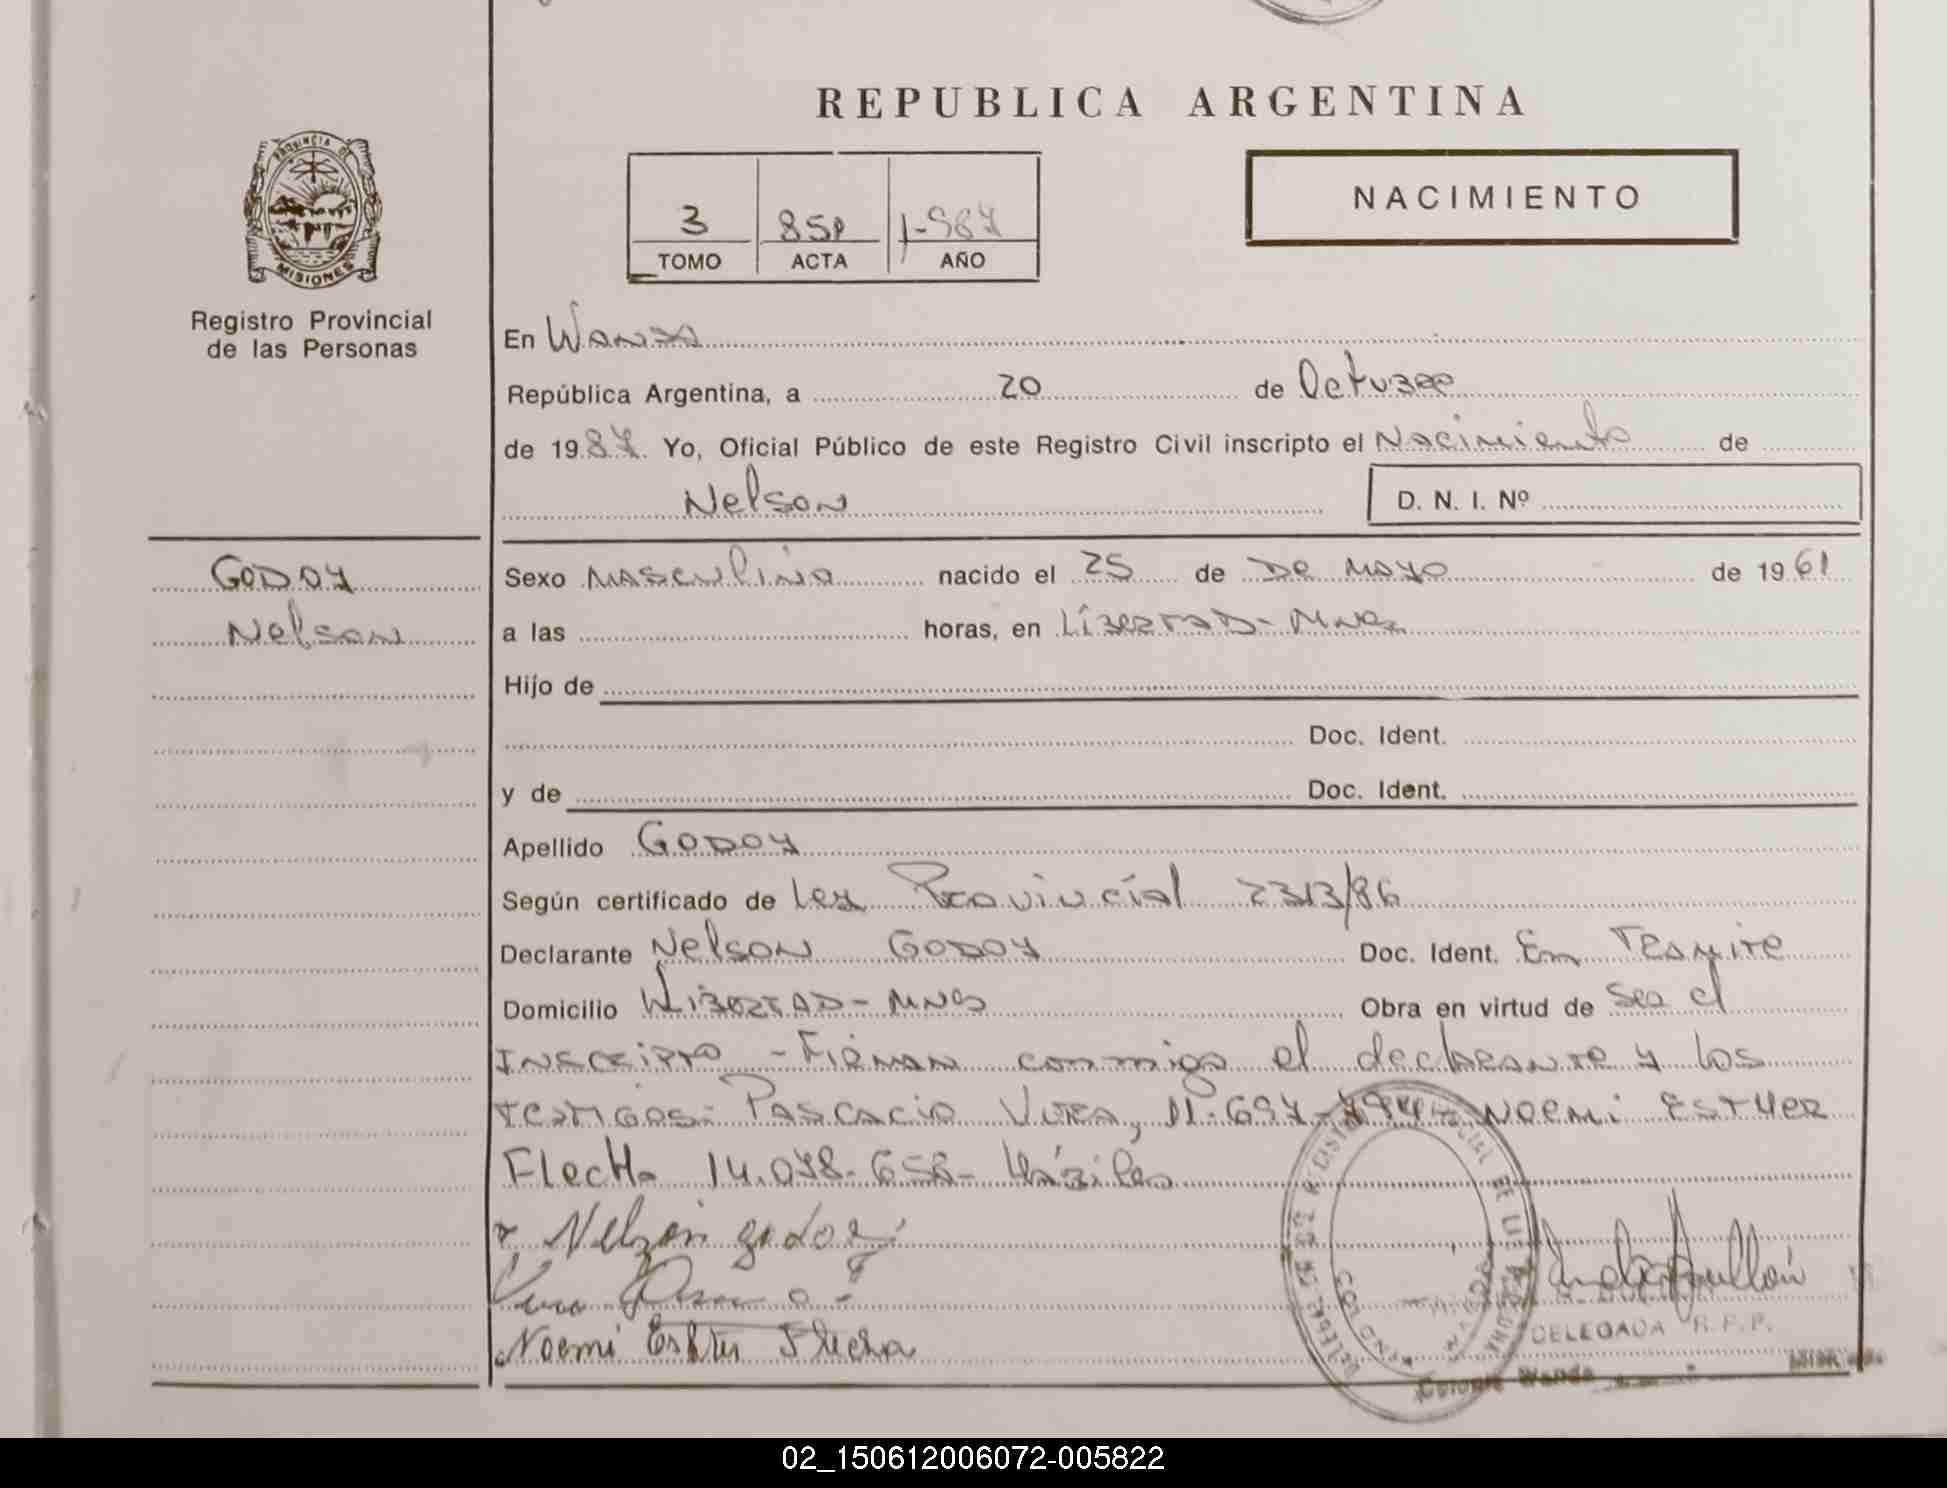 REPUBLICA ARGENTINA
PROVINCIA DE
MISIONES
Registro Provincial
de las Personas
3 TOMO
ACTA
1-987 AÑO
NACIMIENTO
En Wanda
República Argentina, a 20 de Octubre
de 1987. Yo, Oficial Público de este Registro Civil inscripto el Nacimiento de
Nelson D. N. I. Nº
Godoy
Nelson
Sexo Masculino nacido el 25 de De Mayo de 1961
a las horas, en Libertad - Mnes
Hijo de
Doc. Ident.
y de Doc. Ident.
Apellido Godoy
Según certificado de Ley Provincial 2313/86
Declarante Nelson Godoy Doc. Ident. En Tramite
Domicilio Libertad - Mnes Obra en virtud de Sea el
Inscripto - Firman conmigo el declarante y los
testigos: Pascacio Vera, 11.697-794- Noemi Esther
Flecha 14.078-658- Hábiles
Nelson godoi
Vera
Noemi Esther Flecha
DELEGADA R.P.P.
Colonia Wanda
02_150612006072-005822